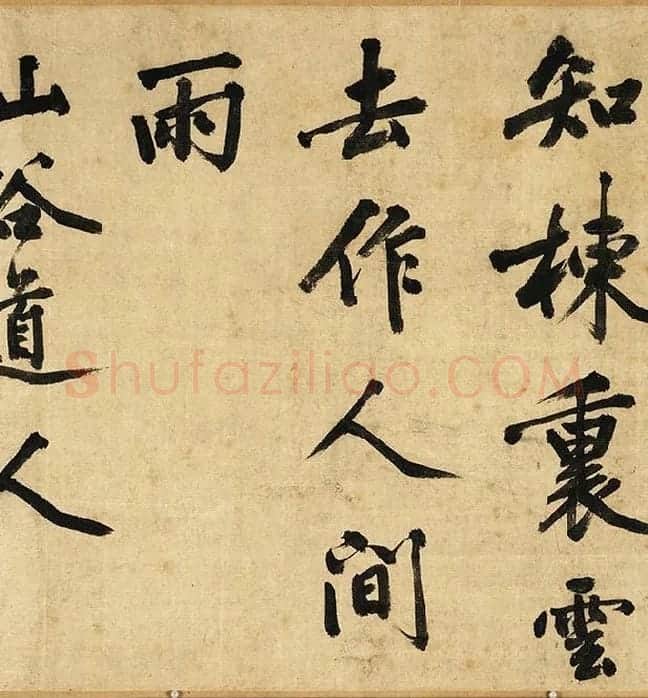 知棟裏雲
去作人間
雨
山谷道人
Shufaziliao.COM